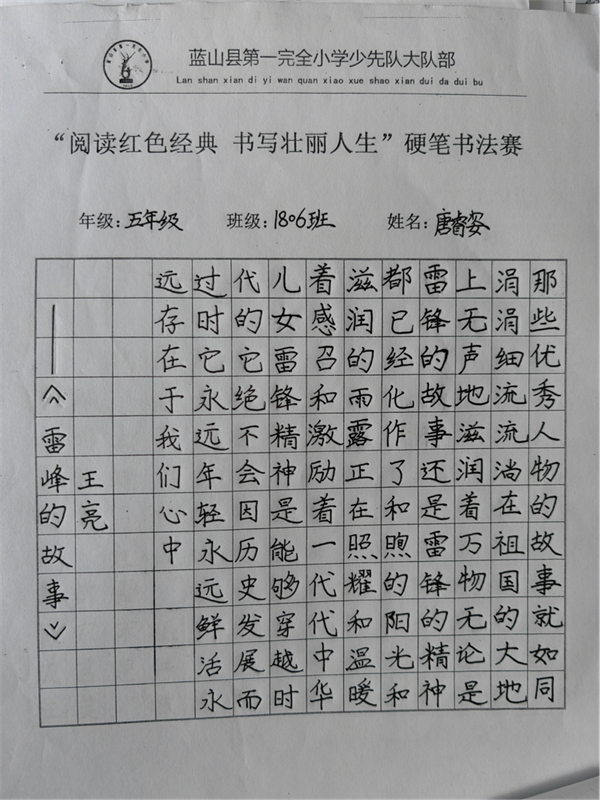 蓝山县第一完全小学少先队大队部
Lan shan xian di yi wan quan xiao xue shao xian dui da dui bu
“阅读红色经典 书写壮丽人生”硬笔书法赛
年级:五年级 班级:1806班 姓名:唐睿姿
那些优秀人物的故事就如同
涓涓细流流淌在祖国的大地
上无声地滋润着万物无论是
雷锋的故事还是雷锋的精神
都已经化作了和煦的阳光和
滋润的雨露正在照耀和温暖
着感召和激励着一代代中华
儿女雷锋精神是能够穿越时
代的它绝不会因历史发展而
过时它永远年轻永远鲜活永
远存在于我们心中
王亮
——《雷峰的故事》